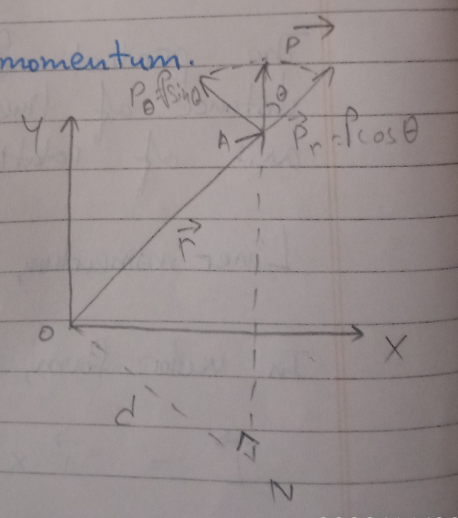 momentum.
P
Pθ = Psinθ
θ
Y
A
Pr = Pcosθ
r
O
X
d
N